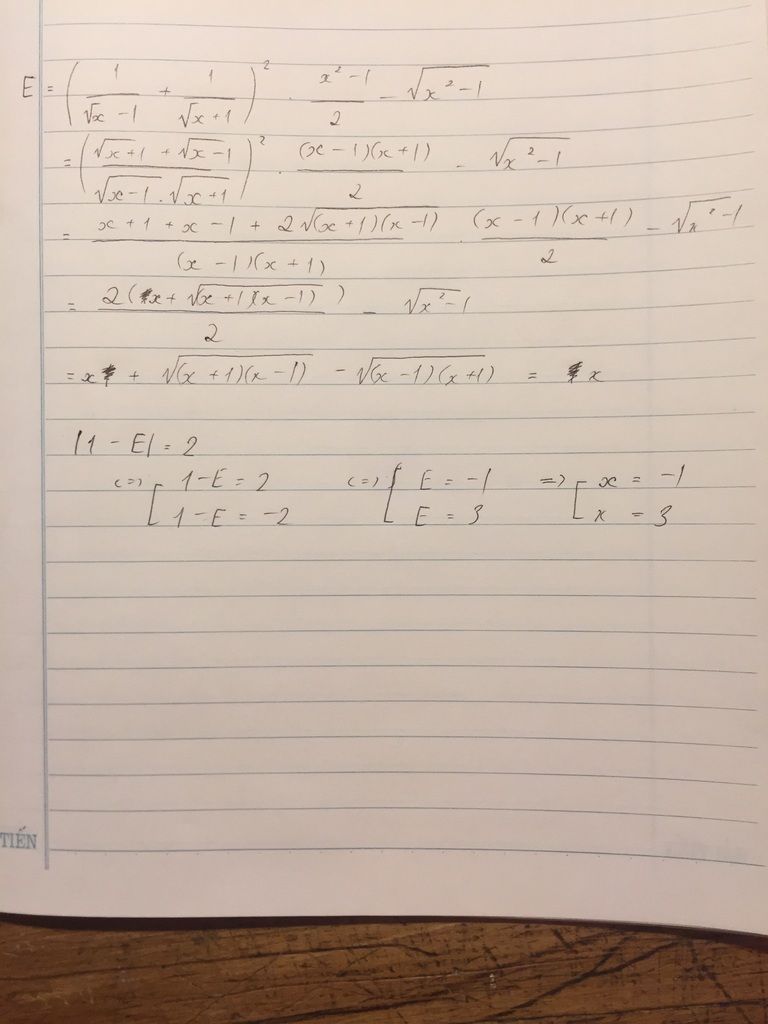 E = (1/(√x - 1) + 1/(√x + 1))² . (x² - 1)/2 - √(x² - 1)
= ((√x+1 + √x-1)/(√x-1 . √x+1))² . ((x - 1)(x + 1))/2 - √(x² - 1)
= (x + 1 + x - 1 + 2√((x + 1)(x - 1)))/((x - 1)(x + 1)) . ((x - 1)(x + 1))/2 - √(x² - 1)
= (2(x + √(x + 1)(x - 1)))/2 - √(x² - 1)
= x + √((x + 1)(x - 1)) - √((x - 1)(x + 1)) = x
|1 - E| = 2
<=> [ 1 - E = 2 <=> [ E = -1 => [ x = -1
1 - E = -2 E = 3 x = 3
TIẾN